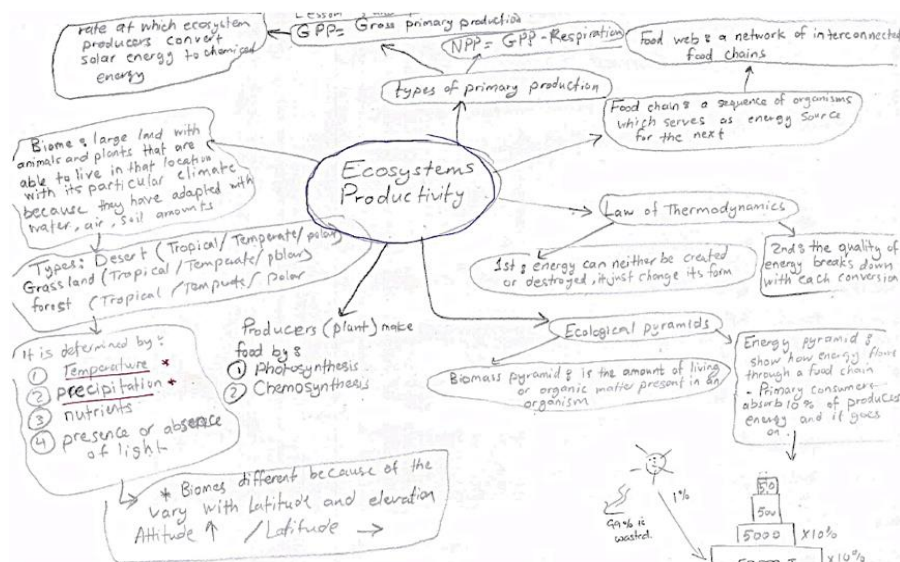 rate at which ecosystem
producers convert
solar energy to chemical
energy
GPP = Gross primary production
NPP = GPP - Respiration
types of primary production
Food web: a network of interconnected
food chains
Food chain: a sequence of organisms
which serves as energy source
for the next
Biome: large land with
animals and plants that are
able to live in that location
with its particular climate
because they have adapted with
water, air, soil amounts
Ecosystems
Productivity
Law of Thermodynamics
1st: energy can neither be created
or destroyed, it just change its form
2nd: the quality of
energy breaks down
with each conversion
Types: Desert (Tropical/Temperate/polar)
Grassland (Tropical/Temperate/polar)
forest (Tropical/Temperate/polar
Producers (plant) make
food by:
① Photosynthesis
② Chemosynthesis
Ecological pyramids
Biomass pyramid: is the amount of living
or organic matter present in an
organism
Energy pyramid:
show how energy flows
through a food chain
- Primary consumers
absorb 10% of produces
energy and it goes
on.
It is determined by:
① Temperature *
② precipitation *
③ nutrients
④ presence or absence
of light
* Biomes different because of the
vary with Latitude and elevation
Attitude ↑ / Latitude →
1%
99% is
wasted.
50
500
5000 x10%
x10%